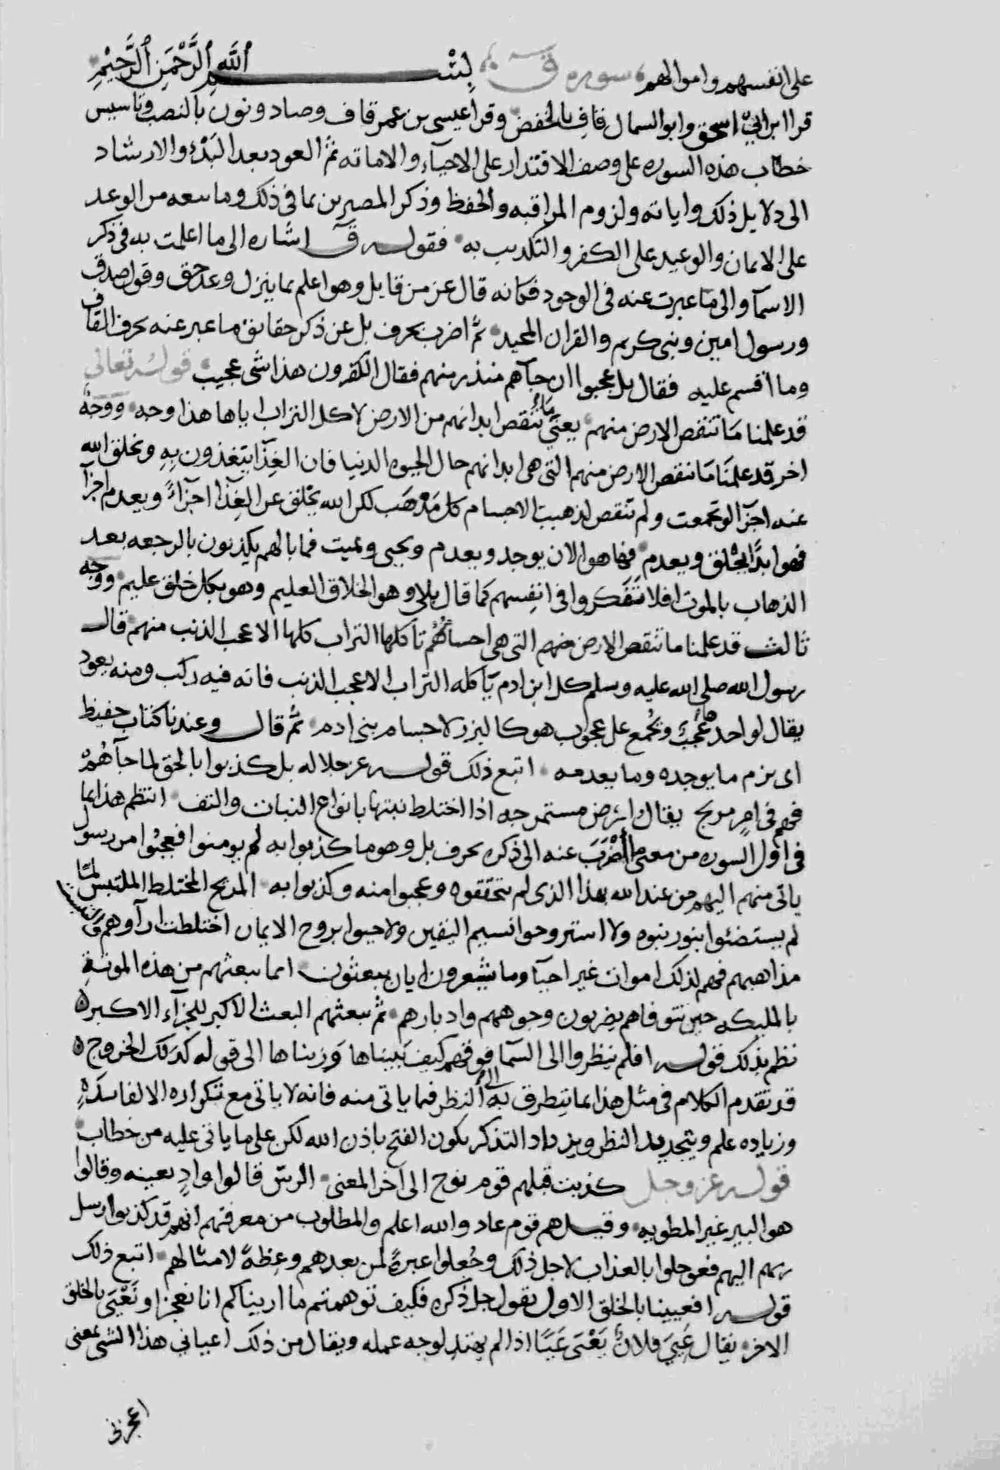 على انفسهم واموالهم سوره ق بِسْــــمِ ٱللَّهِ ٱلرَّحْمَنِ ٱلرَّحِيْمِ
قرا ابن ابي اسحق وابو السمال قافِ بالخفض وقرا عيسى بن عمر قاف وصاد ونون بالنصب وتاسيس
خطاب هذه السوره على وصف الاقتدار على الاحيآء والاماته ثمّ العود بعد البَدْء والارشاد
الى دلايل ذلك واياته ولزوم المراقبه والحفظ وذكر المصيرين بما في ذلك وما معه من الوعد
على الايمان والوعيد على الكفر والتكذيب به فقوله ق اشاره الى ما اعلمت به في ذكر
الاسمآ والى ما عبرت عنه في الوجود فكانه قال عز من قايل وهو اعلم بما ينزل وعد حق وقول صدق
ورسول امين ونبي كريم والقران المجيد ثمّ اضرب بحرف بل عن ذكر حقايق ما عبر عنه بحرف القاف
وما اقسم عليه فقال بل عجبوا ان جآهم منذر منهم فقال الكفرون هذا شى عجيب قوله تعالى
قد علمنا ما تنقص الارض منهم يعني ما تُنقص ابدانهم من الارض لاكل التراب اياها هذا وجه ووجهٌ
اخر قد علمنا ما تنقص الارض منهم التى هى ابدانهم حال الحيوه الدنيا فان الغذآ يتغذون به ويخلق الله
عنه اجزآ لو تجمعت ولم تنقص لذهبت الاجسام كل مذهب لكن الله يخلق عن الغذآ اجزآءً ويعدم اجزآ
فهو ابدًا يخلق ويعدم فها هو الان يوجد ويعدم ويحيى ويميت فما بالهم يكذبون بالرجعه بعد
الذهاب بالموت افلا تفكروا في انفسهم كما قال بلى وهو الخلاق العليم وهو بكل خلق عليم ووجه
ثالث قد علمنا ما تنقص الارض منهم التى هى اجسامهم تاكلها التراب كلها الا عجب الذنب منهم قال
رسول الله صلى الله عليه وسلم كل ابن ادم ياكله التراب الا عجب الذنب فانه فيه ركب ومنه يعود
يقال لواحده عُجْبٌ وتجمع على عجوب هو كالبزر لاجسام بنى ادم ثمّ قال وعندنا كتاب حفيظ
اى يزم ما يوجده وما يعدمه اتبع ذلك قوله عز جلاله بل كذبوا بالحق لما جآهُمْ
فهم في امر مريج يقال ارض مستمرجه اذا اختلط نبتها بانواع النبات والتف انتظم هذا بما
في اول السوره من معنى ما اُضْرَبَ عنه الى ذكره بحرف بل وهو ما كذبوا به لم يومنوا فعجبُوا من رسول
ياتى منهم اليهم من عند الله بهذا الذى لم يتحققوه وعجبوا منه وكذبوا به المريج المختلط الملتبس لمّا
لم يستضئوا بنور نبوه ولا استروحوا نسيم اليقين ولا حيوا بروح الايمان اختلطت ارآوهم
مذاهبهم فهم لذلك اموات غير احيآ وما يشعرون ايان يبعثون انما يبعثهم من هذه الموتة
بالمليكه حين تتوفاهم يضربون وجوههم وادبارهم ثم يبعثهم البعث الاكبر للجزآء الاكبر ه
نظم بذلك قوله افلم ينظروا الى السمآ فوقهم كيف بنيناها وزيناها الى قوله كذلك الخروج ه
قد تقدم الكلام في مثل هذا بما يتطرق به الى النظر فيما ياتى منه فانه لا ياتى مع تكراره الا لفايدةٍ
وزياده علم وبتجديد النظر وبزداد التذكر يكون الفتح باذن الله لكن على ما ياتى عليه من خطاب
قوله عز وجل كذبت قبلهم قوم نوح الى اخر المعنى الرسّ قالوا وادٍ بعينه وقالوا
هو البير غير المطويه وقبلهم قوم عاد والله اعلم والمطلوب من معرفتهم انهم قد كذبوا رسل
ربهم اليهم فعوجلوا بالعذاب لاجل ذلك وجُعلوا عبرةً لمن بعدهم وعِظةً لامثالهم اتبع ذلك
قوله افعيينا بالخلق الاول يقول جل ذكره فكيف توهمتم ما اريناكم انا نعجز او نَعْيَى بالخلق
الاخر يقال عَيِيَ فلانٌ يَعْيَى عَيًّا اذا لم يهتد لوجه عمله ويقال من ذلك اعياني هذا الشى بمعنى
اعجزني